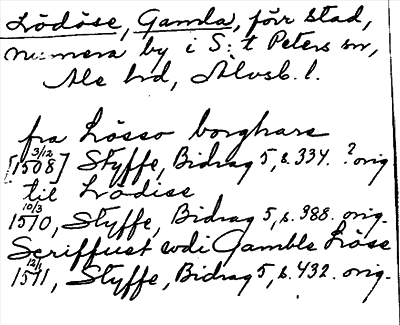 Lödöse, Gamla, förr stad,
numera by i S:t Peters sn,
Ale hd, Älvsb. l.
fra Lösso borghare
[1508 3/12] Styffe, Bidrag 5, s. 334. ? orig
til Lödise
1510 10/3, Styffe, Bidrag 5, s. 388. orig.
Scriffuet udi Gamble Löse
1511 12/1, Styffe, Bidrag 5, s. 432. orig.